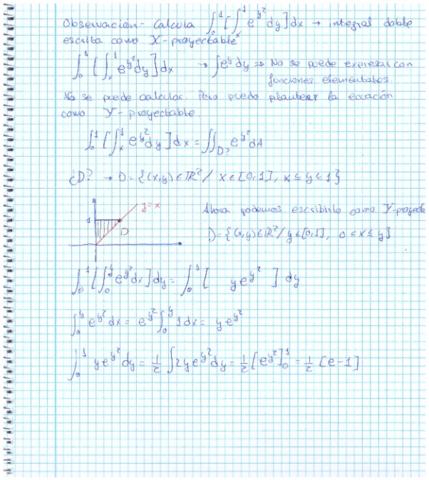 Observación- Calcula ∫₀¹[∫ₓ¹ e^{y²} dy] dx → integral doble
escrita como X-proyectable
∫₀¹ [∫ₓ¹ e^{y²} dy] dx → ∫e^{y²} dy ⇒ No se puede expresar con
funciones elementales
No se puede calcular. Pero puedo plantear la ecuación
como Y-proyectable
∫₀¹ [∫ₓ¹ e^{y²} dy] dx = ∬_{D?} e^{y²} dA
¿D? → D = {(x,y) ∈ ℝ² / x ∈ [0,1], x ≤ y ≤ 1}
y=x
1
D
Ahora podemos escribirlo como Y-proyecta
D = {(x,y) ∈ ℝ² / y ∈ [0,1], 0 ≤ x ≤ y}
∫₀¹ [∫₀^y e^{y²} dx] dy = ∫₀¹ [ y e^{y²} ] dy
∫₀^y e^{y²} dx = e^{y²} ∫₀^y 1 dx = y e^{y²}
∫₀¹ y e^{y²} dy = 1/2 ∫ 2y e^{y²} dy = 1/2 [e^{y²}]₀¹ = 1/2 [e-1]